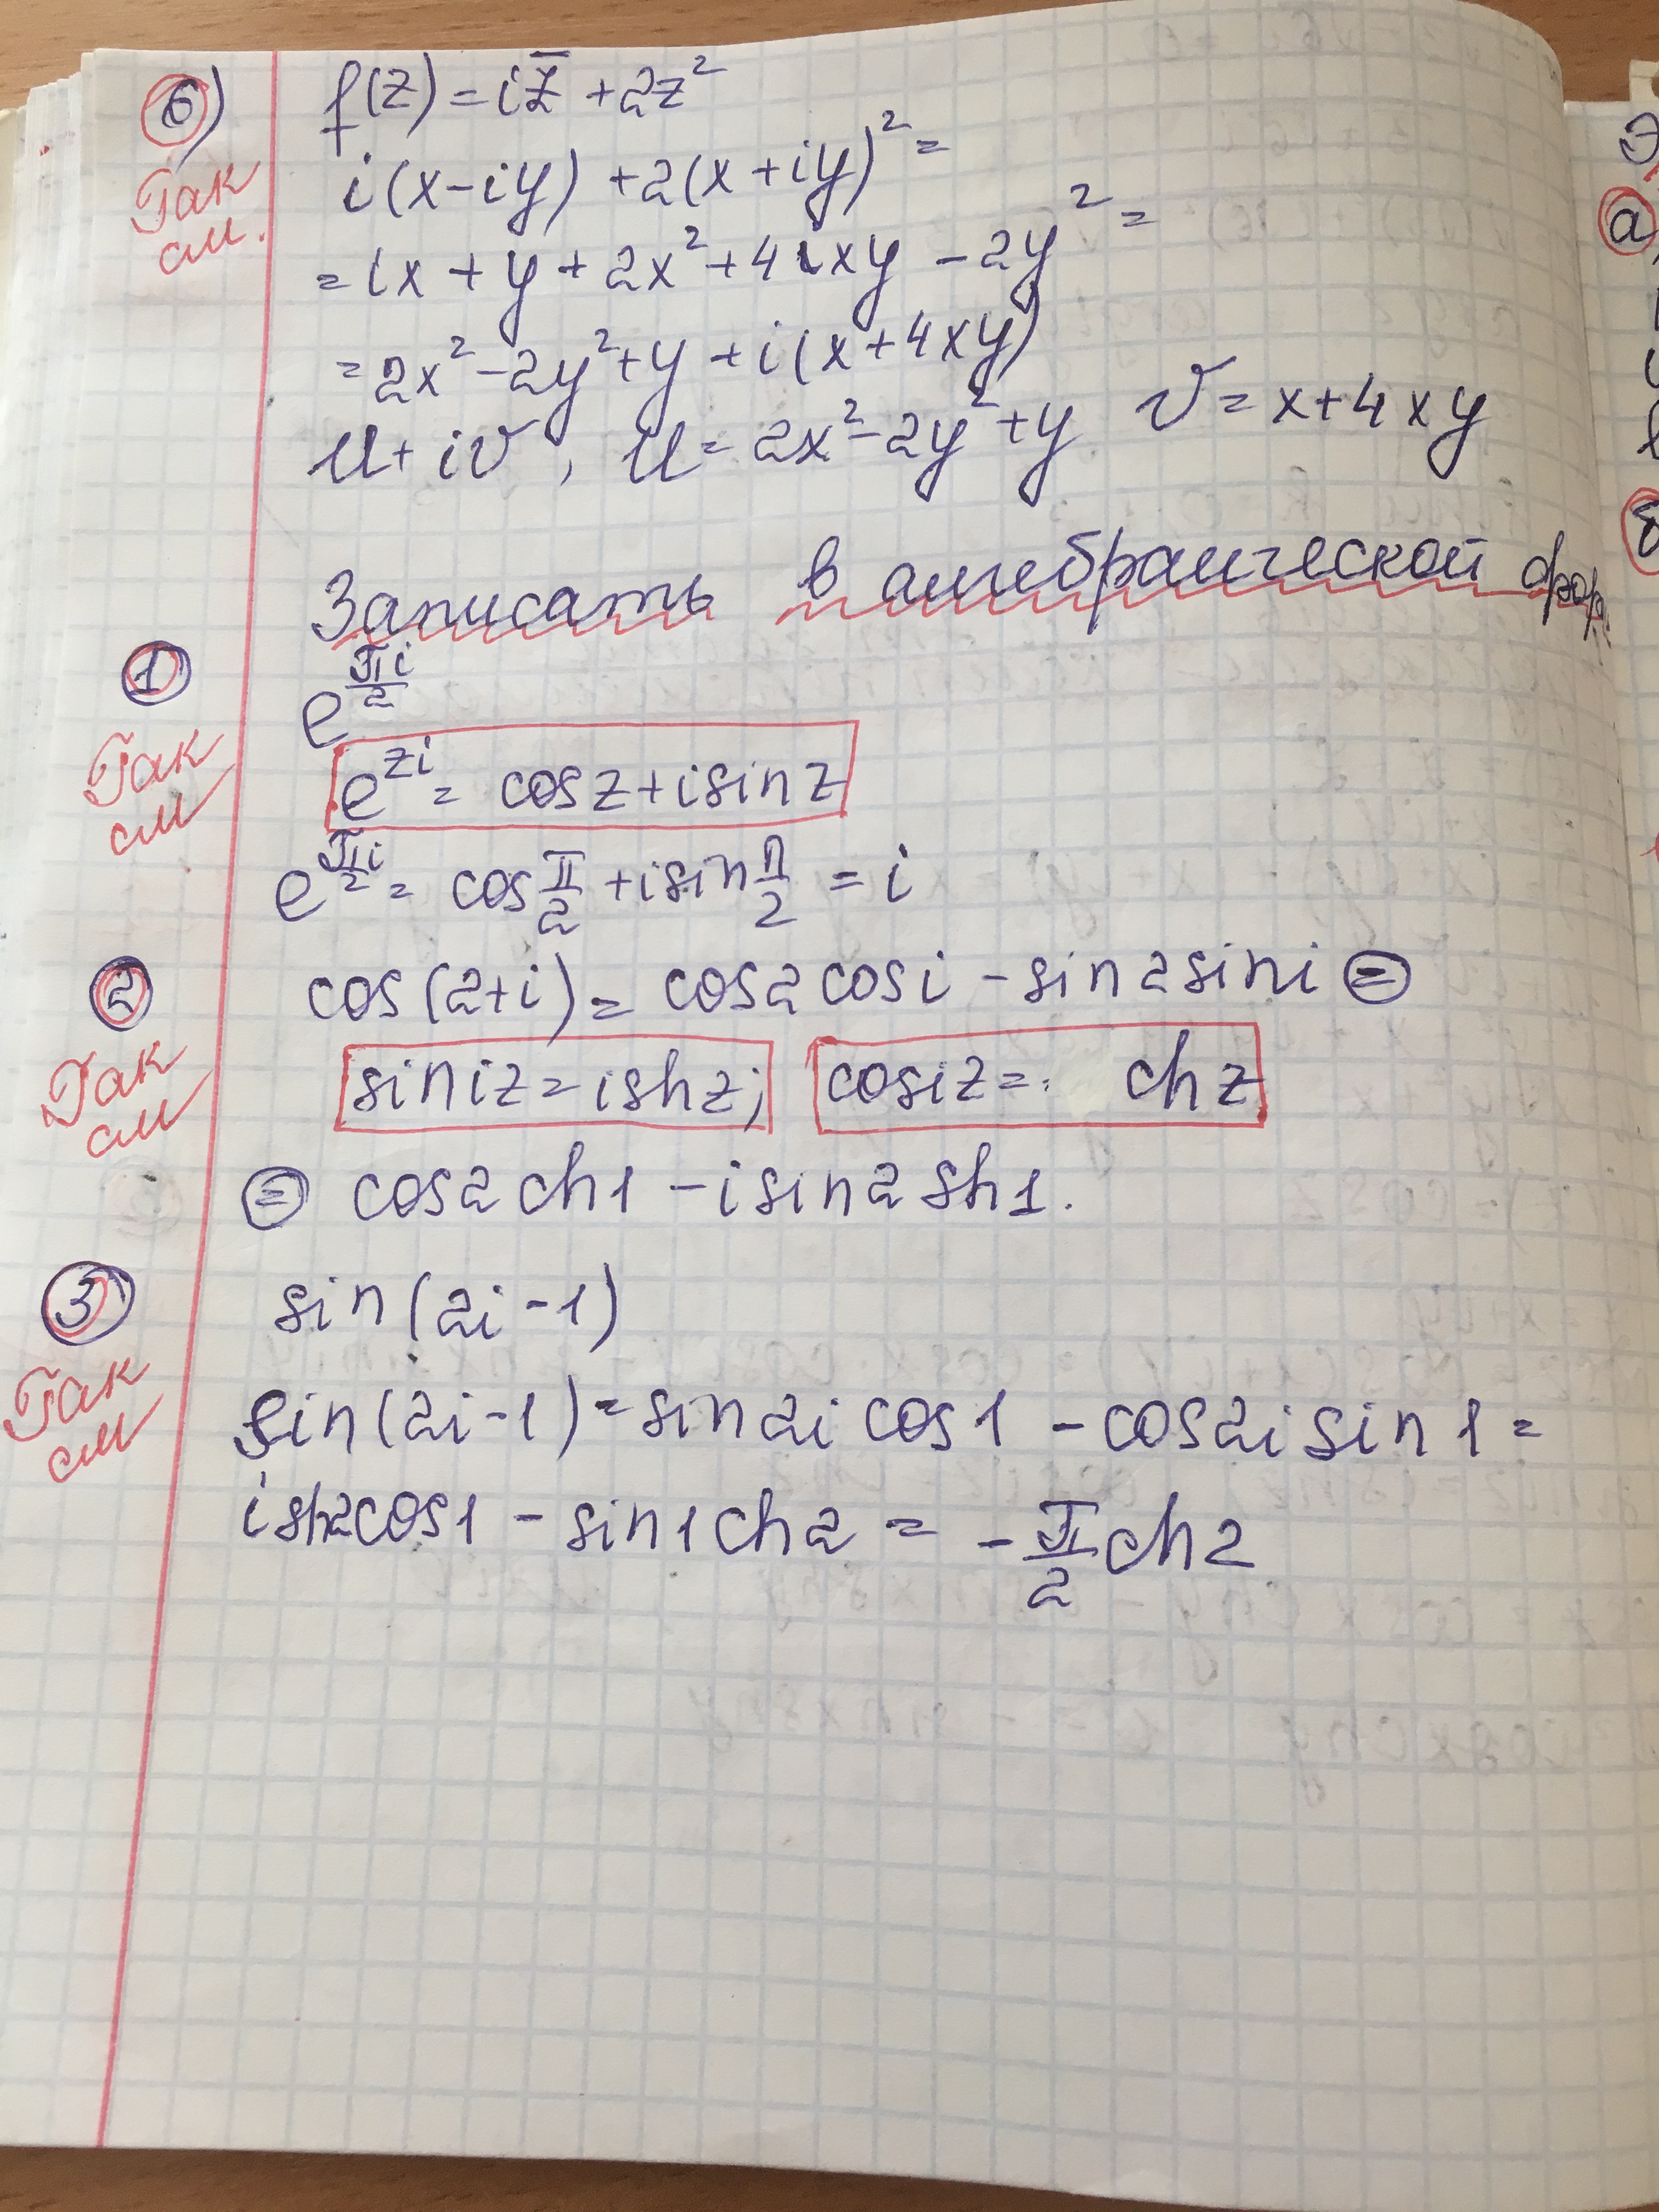 б) f(z) = iz̅ + 2z²
Так см.
i(x-iy) + 2(x+iy)² =
= ix + y + 2x² + 4ixy - 2y² =
= 2x² - 2y² + y + i(x+4xy)
u + iv, u = 2x² - 2y² + y v = x + 4xy
Записать в алгебраической фор
① e^(πi/2)
Так см
e^(zi) = cos z + i sin z
e^(π/2 i) = cos π/2 + i sin π/2 = i
② cos(2+i) = cos2 cos i - sin2 sin i ⊜
Так см
sin iz = i sh z; cos iz = ch z
⊜ cos2 ch1 - i sin2 sh1.
③ sin(2i-1)
Так см
sin(2i-1) = sin2i cos1 - cos2i sin1 =
i sh2 cos1 - sin1 ch2 = -π/2 ch2
а